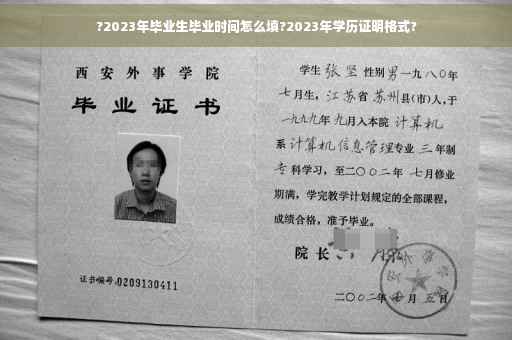 ?2023年毕业生毕业时间怎么填?2023年学历证明格式?
西安外事学院
毕业证书
证书编号:0209130411
学生 张坚 性别男 一九八〇年
七月生，江苏省苏州县(市)人，于
一九九九年九月入本院 计算机
系 计算机信息管理专业 三年制
专科学习，至二〇〇二年七月修业
期满，学完教学计划规定的全部课程，
成绩合格，准予毕业。
院长
二〇〇二年 月五日